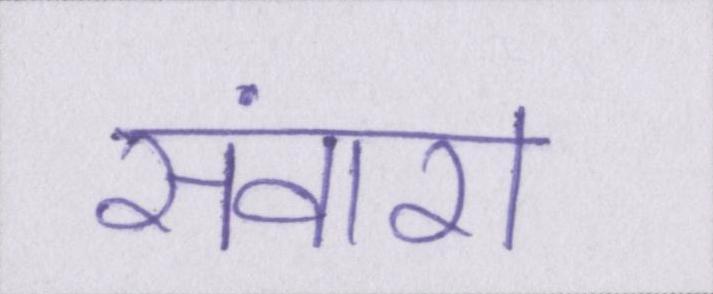 संवारा